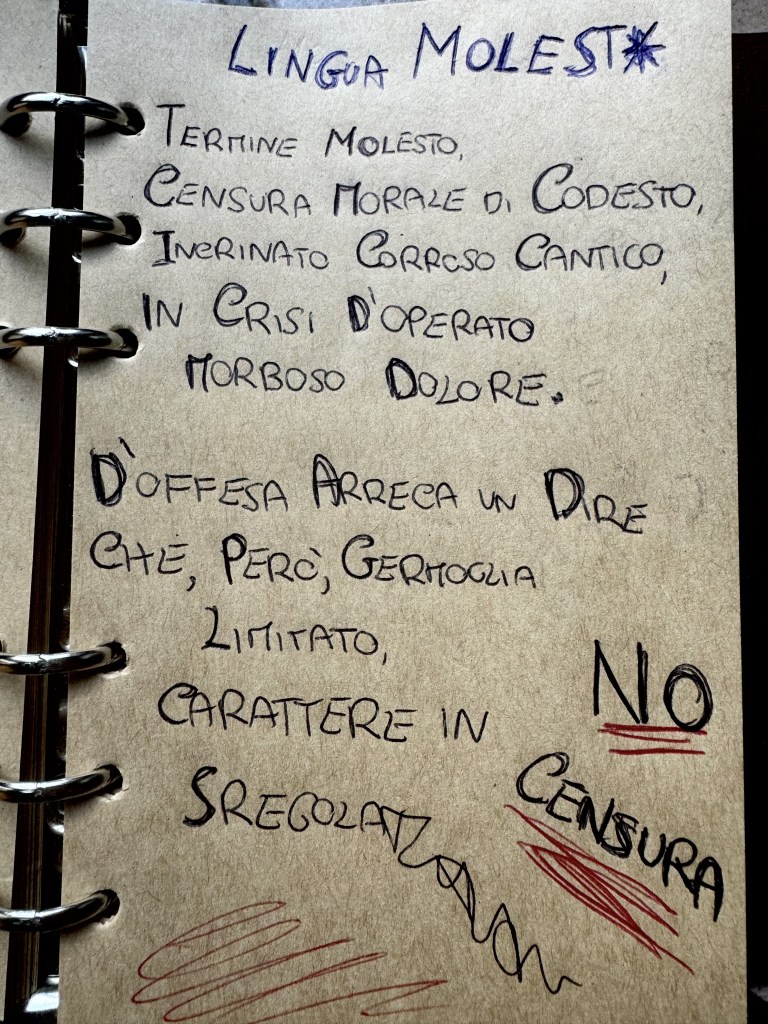 LINGUA MOLEST*
TERMINE MOLESTO,
CENSURA MORALE DI CODESTO,
INCRINATO CORROSO CANTICO,
IN CRISI D'OPERATO
MORBOSO DOLORE.
D'OFFESA ARRECA UN DIRE
CHE, PERÒ, GERMOGLIA
LIMITATO,
CARATTERE IN
SREGOLAT
NO
CENSURA